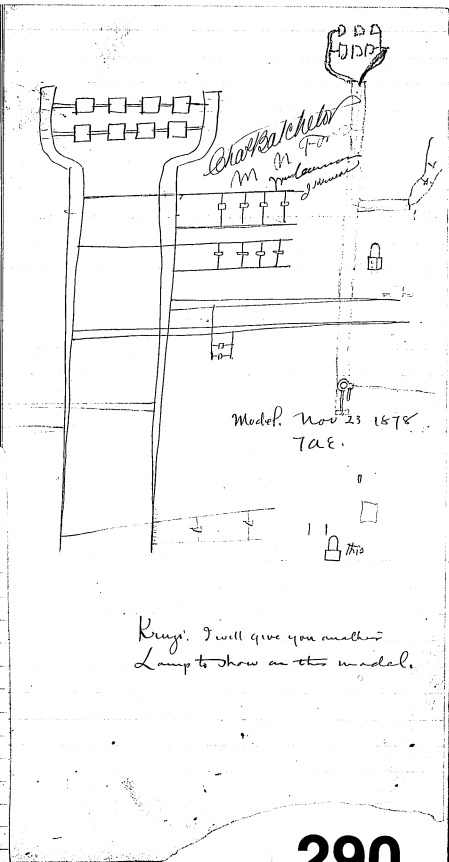 Chas Batchelor
M N For
Model. Nov 23 1878
T A E.
this
Kruzi. I will give you another
Lamp to show on this model.
290